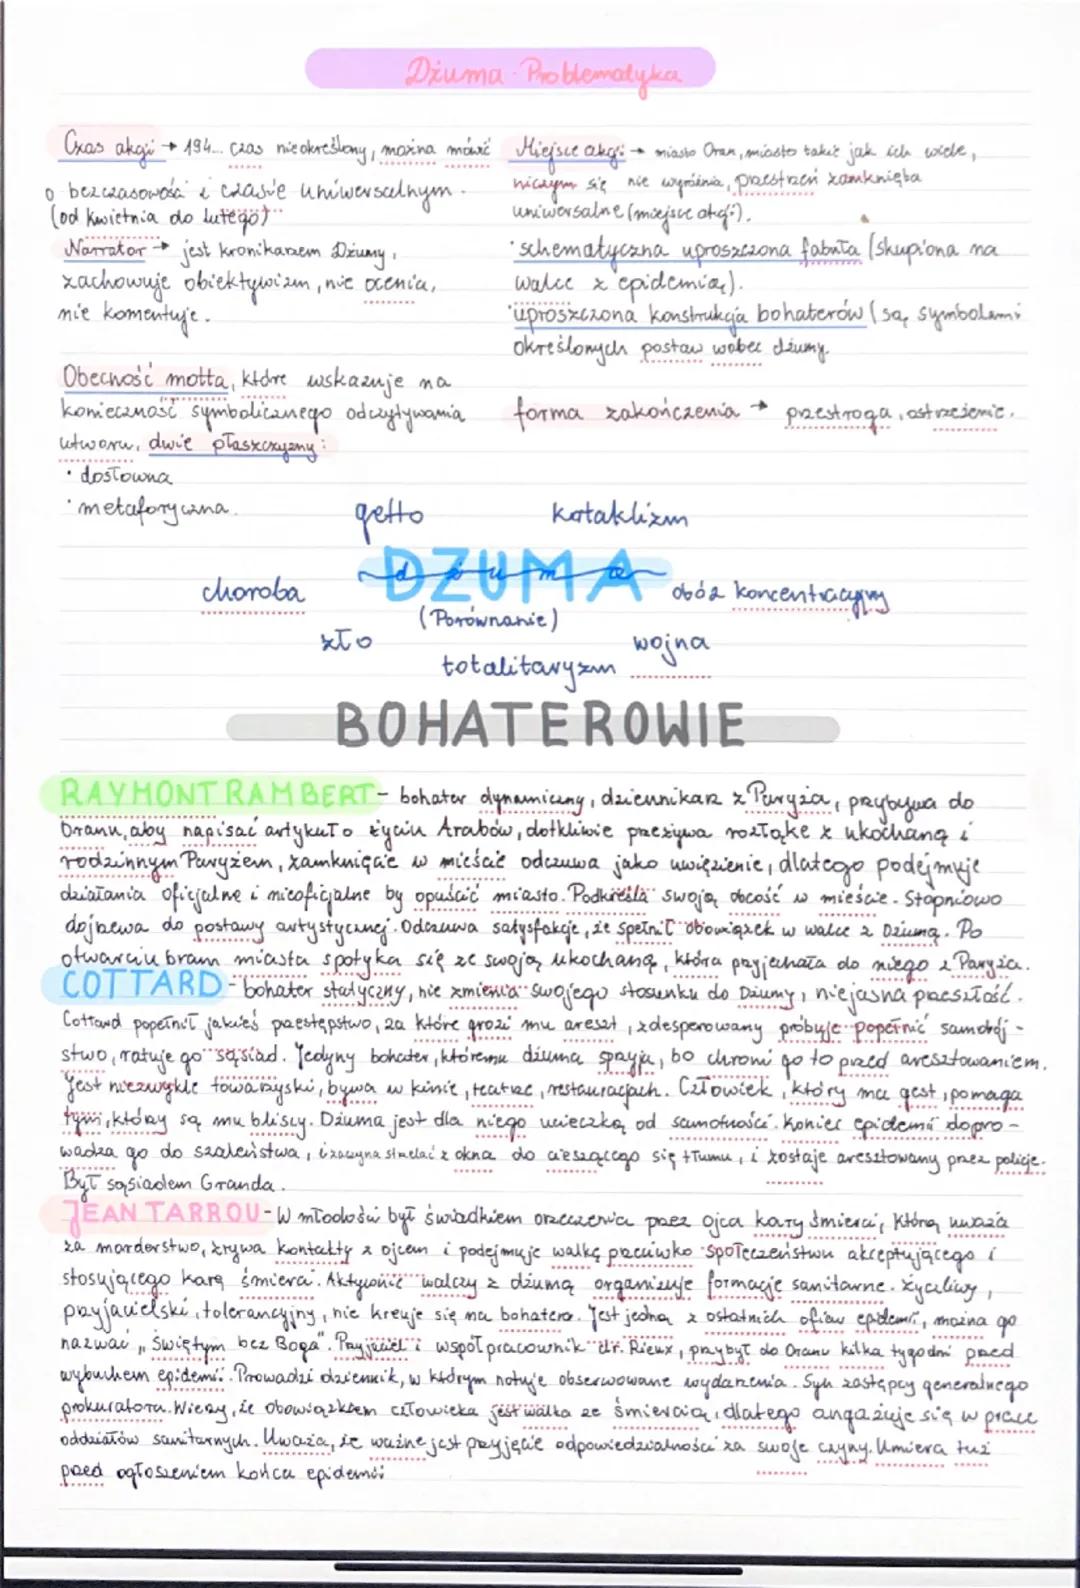 Dżuma - Problematyka
Czas akcji → 194... czas nieokreślony, można mówić
o bezczasowości i czasie uniwersalnym.
(od kwietnia do lutego)
Narrator → jest kronikarzem Dżumy,
zachowuje obiektywizm, nie ocenia,
nie komentuje.
Obecność motta, które wskazuje na
konieczność symbolicznego odczytywania
utworu, dwie płaszczyzny:
• dosłowna
• metaforyczna.
Miejsce akcji → miasto Oran, miasto takie jak ich wiele,
niczym się nie wyróżnia, przestrzeń zamknięta
uniwersalne (miejsce akcji).
• schematyczna uproszczona fabuła (skupiona na
walce z epidemią).
• uproszczona konstrukcja bohaterów (są symbolami
określonych postaw wobec dżumy.
forma zakończenia → przestroga, ostrzeżenie.
getto
kataklizm
choroba
DŻUMA
dżuma
obóz koncentracyjny
(Porównanie)
zło
wojna
totalitaryzm
BOHATEROWIE
RAYMONT RAMBERT - bohater dynamiczny, dziennikarz z Paryża, przybywa do
Oranu, aby napisać artykuł o życiu Arabów, dotkliwie przeżywa rozłąkę z ukochaną i
rodzinnym Paryżem, zamknięcie w mieście odczuwa jako uwięzienie, dlatego podejmuje
działania oficjalne i nieoficjalne by opuścić miasto. Podkreśla swoją obcość w mieście. Stopniowo
dojrzewa do postawy artystycznej. Odczuwa satysfakcje, że spełnił obowiązek w walce z Dżumą. Po
otwarciu bram miasta spotyka się ze swoją ukochaną, która przyjechała do niego z Paryża.
COTTARD - bohater statyczny, nie zmienia swojego stosunku do Dżumy, niejasna przeszłość.
Cottard popełnił jakieś przestępstwo, za które grozi mu areszt, zdesperowany próbuje popełnić samobój-
stwo, ratuje go sąsiad. Jedyny bohater, któremu dżuma sprzyja, bo chroni go to przed aresztowaniem.
Jest niezwykle towarzyski, bywa w kinie, teatrze, restauracjach. Człowiek, który ma gest, pomaga
tym, którzy są mu bliscy. Dżuma jest dla niego ucieczką od samotności. Koniec epidemii dopro-
wadza go do szaleństwa, i zaczyna strzelać z okna do cieszącego się tłumu, i zostaje aresztowany przez policje.
Był sąsiadem Granda.
JEAN TARROU - W młodości był świadkiem orzeczenia przez ojca kary śmierci, którą uważa
za morderstwo, zrywa kontakty z ojcem i podejmuje walkę przeciwko społeczeństwu akceptującego i
stosującego karę śmierci. Aktywnie walczy z dżumą organizuje formacje sanitarne. Życzliwy,
przyjacielski, tolerancyjny, nie kreuje się na bohatera. Jest jedną z ostatnich ofiar epidemii, można go
nazwać „Świętym bez Boga". Przyjaciel i współpracownik dr. Rieux, przybył do Oranu kilka tygodni przed
wybuchem epidemii. Prowadzi dziennik, w którym notuje obserwowane wydarzenia. Syn zastępcy generalnego
prokuratora. Wierzy, że obowiązkiem człowieka jest walka ze śmiercią, dlatego angażuje się w prace
oddziałów sanitarnych. Uważa, że ważne jest przyjęcie odpowiedzialności za swoje czyny. Umiera tuż
przed ogłoszeniem końca epidemii